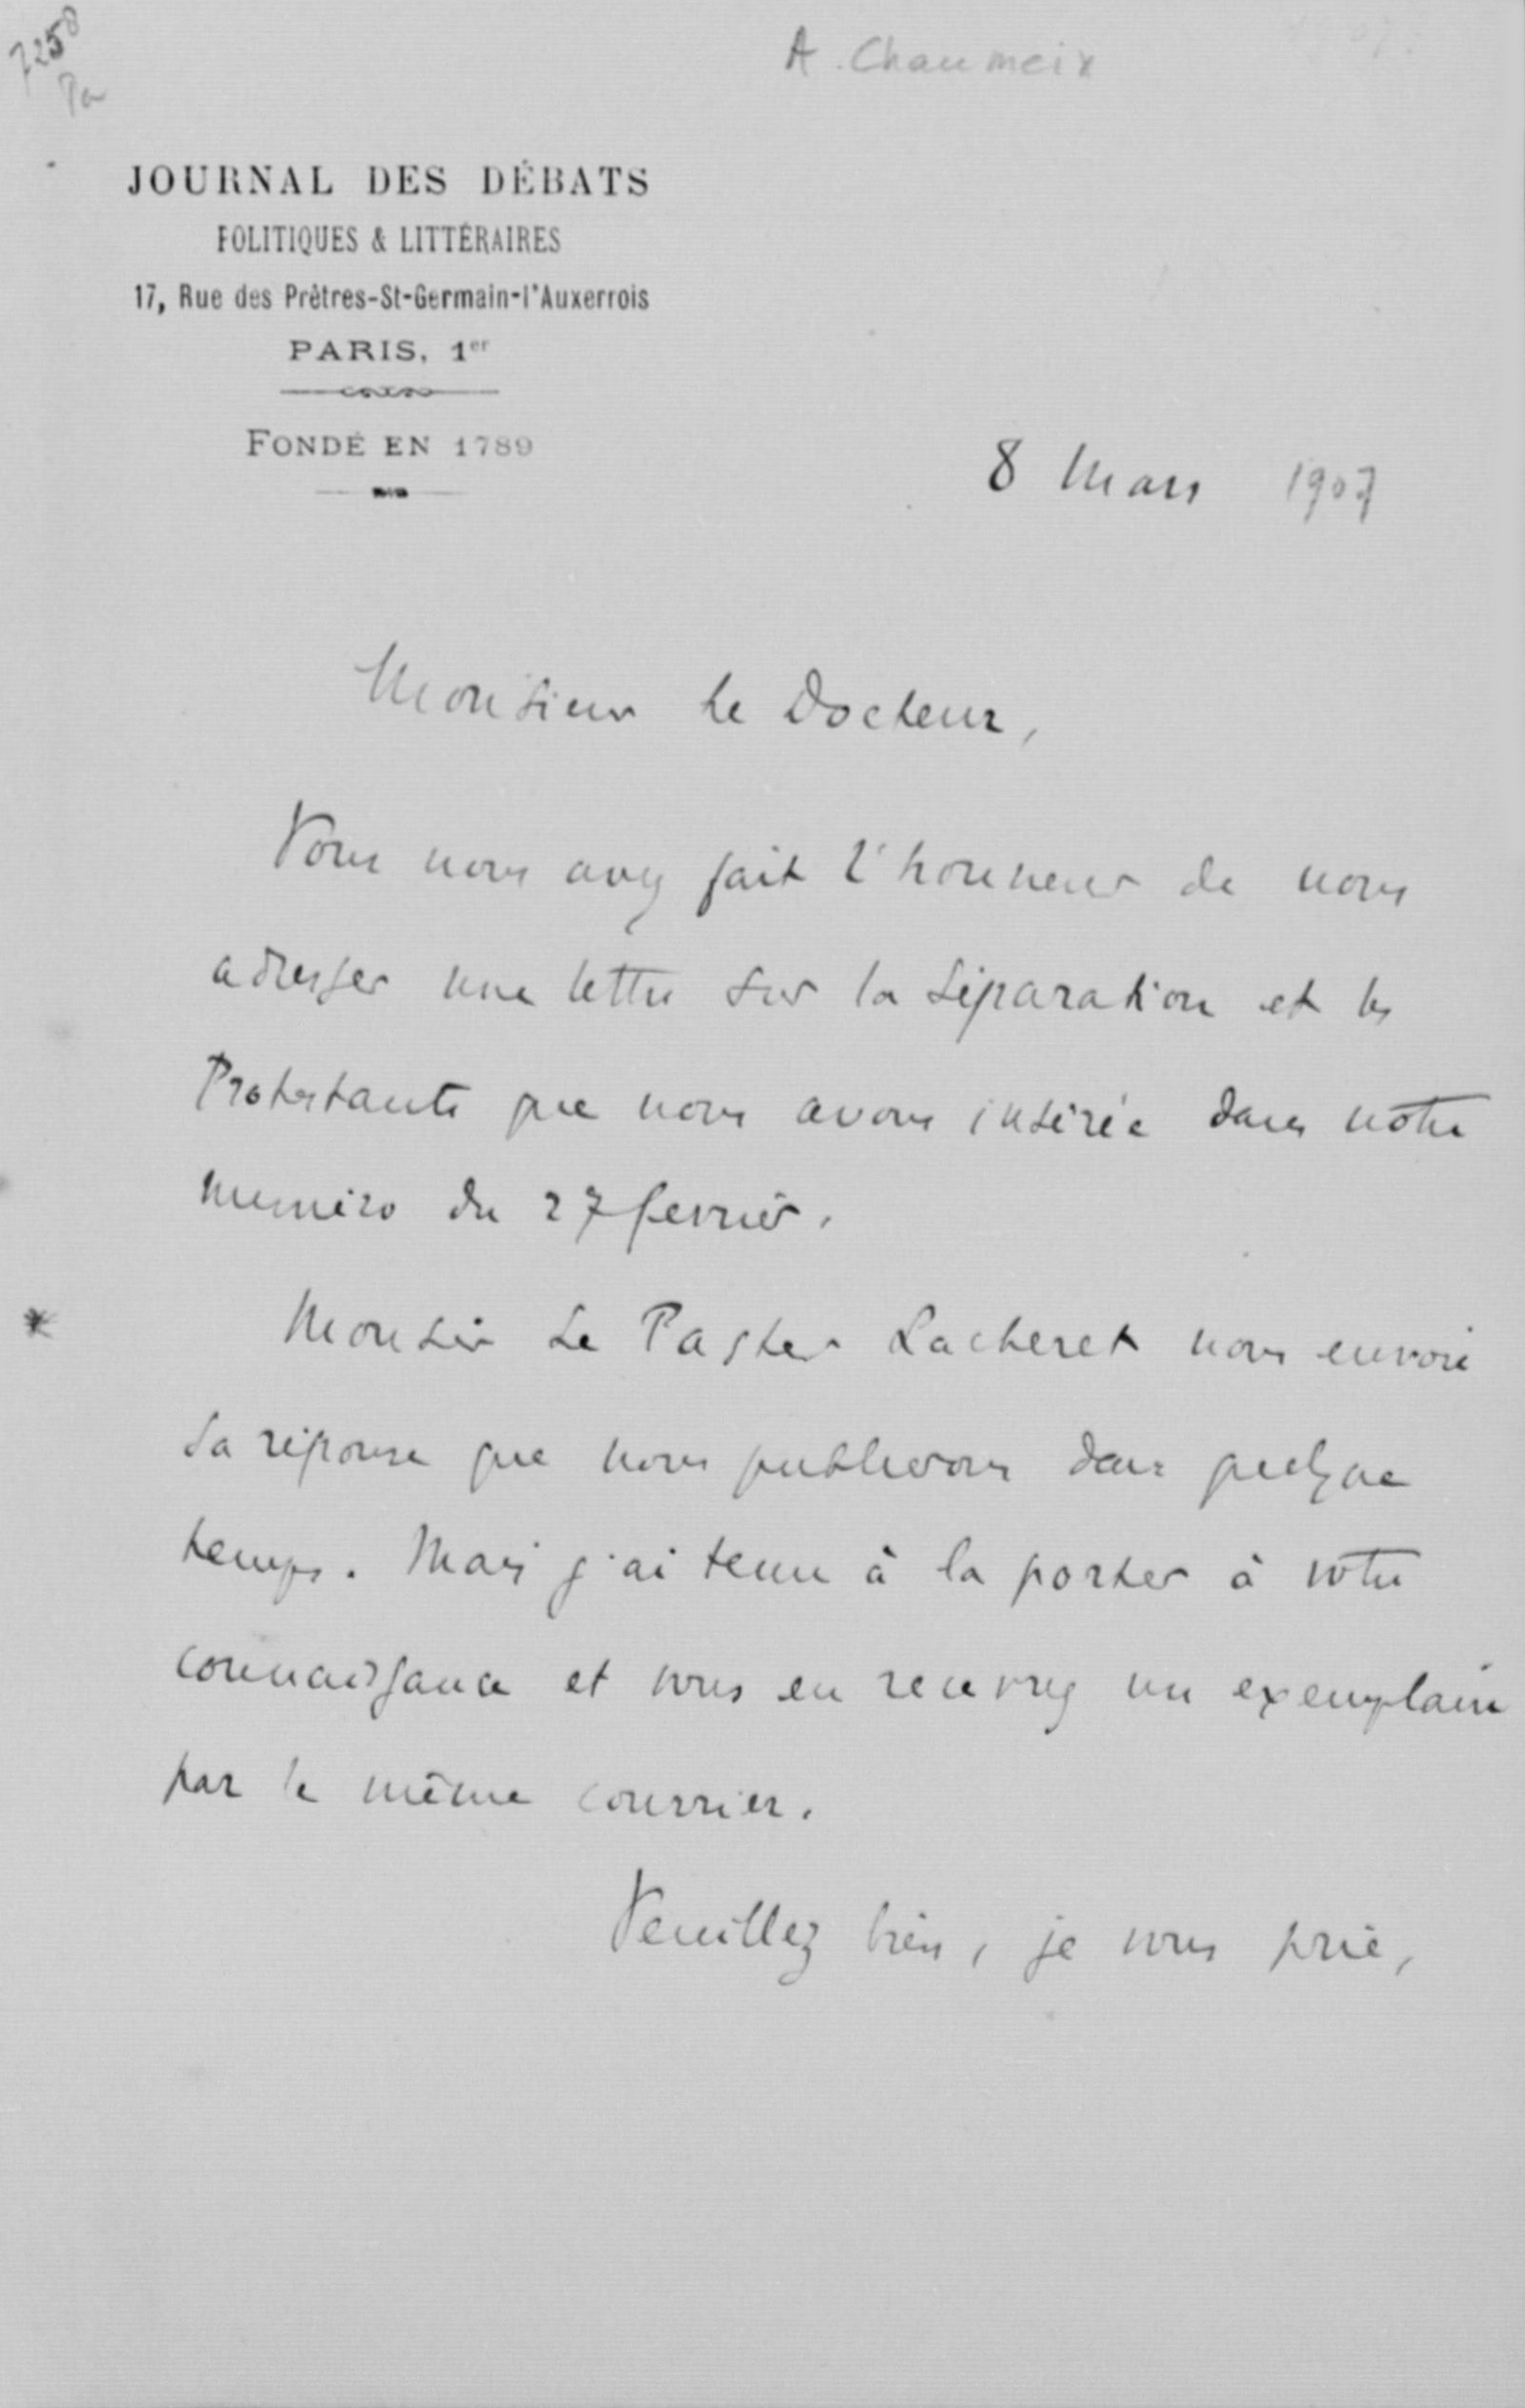 7258
Pa
A. Chaumeix
JOURNAL DES DÉBATS
POLITIQUES & LITTÉRAIRES
17, Rue des Prêtres-St-Germain-l'Auxerrois
PARIS, 1er
FONDÉ EN 1789
8 Mars 1907
Monsieur le Docteur,
Vous nous avez fait l'honneur de nous
adresser une lettre sur la Séparation et les
Protestants que nous avons insérée dans notre
numéro du 27 février.
Monsieur Le Pasteur Lacheret nous envoie
sa réponse que nous publierons dans quelque
temps. Mais j'ai tenu à la porter à votre
connaissance et vous en recevrez un exemplaire
par le même courrier.
Veuillez bien, je vous prie,